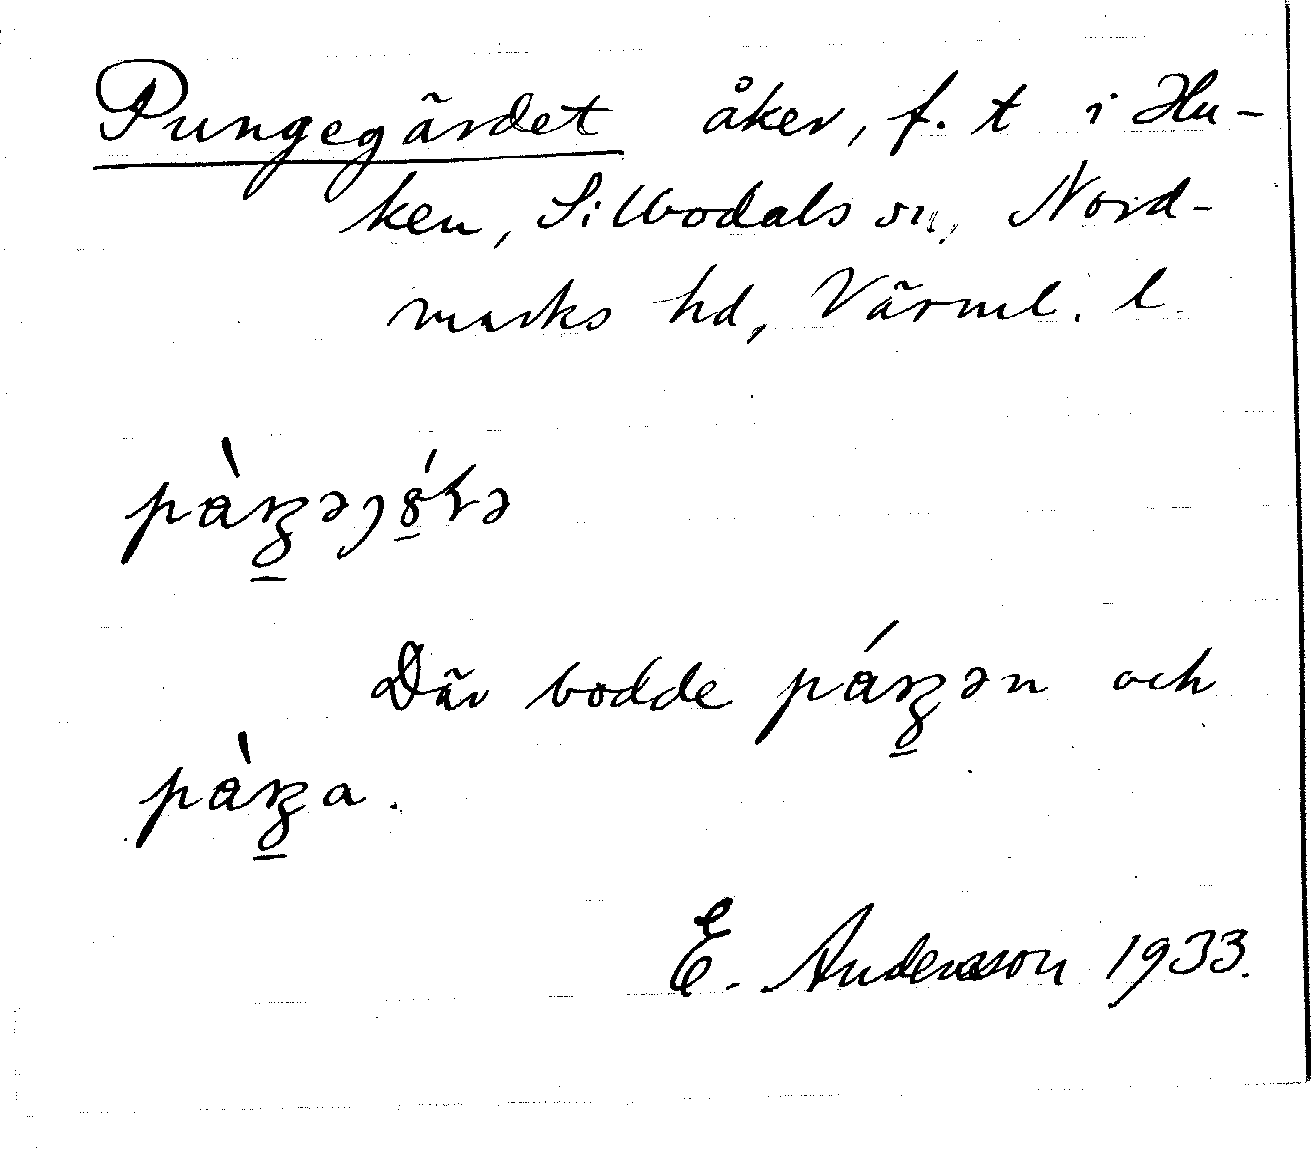 Pungegärdet åker, f. t i Hu-
ken, Silbodals sn, Nord-
marks hd, Värml. l.
Där bodde och
E. Andersson 1933.